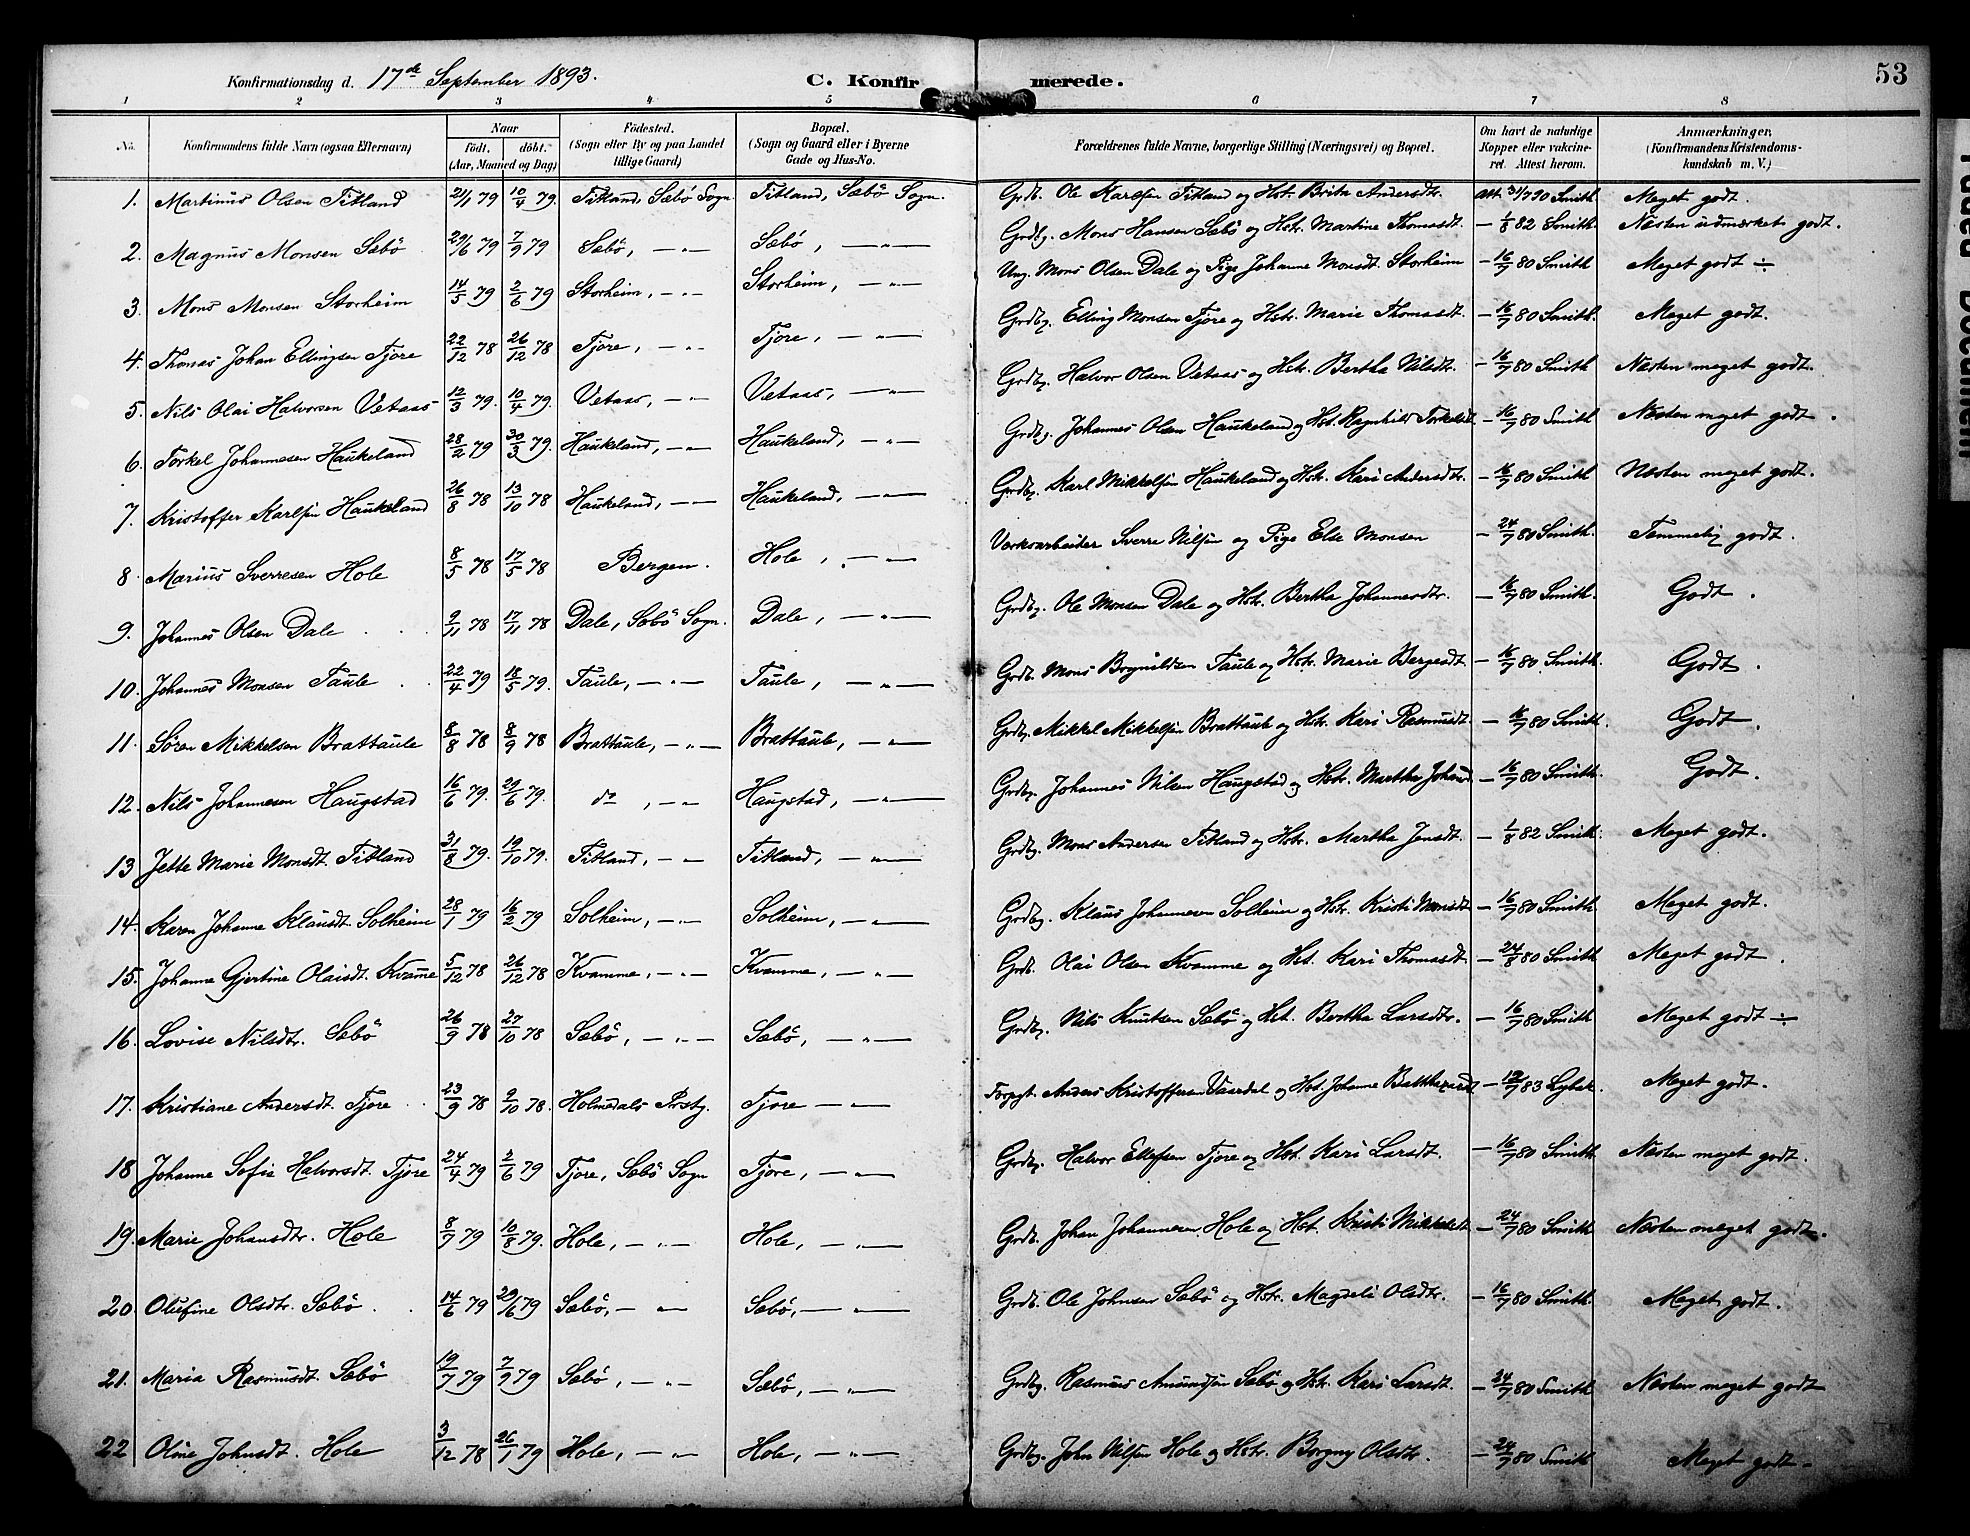 Konfirmationsdag d. 17de September 1893. C. Konfirmerede. 53
1 2 3 4 5 6 7 8
No. Konfirmandens fulde Navn (ogsaa Efternavn) Naar født. døbt. (Aar, Maaned og Dag) Fødested. (Sogn eller By og paa Landet tillige Gaard) Bopæl. (Sogn og Gaard eller i Byerne Gade og Hus-No. Forældrenes fulde Navne, borgerlige Stilling (Næringsvei) og Bopæl. Om havt de naturlige Kopper eller vakcineret. Attest herom. Anmærkninger. (Konfirmandens Kristendomskundskab m. V.)
1. Martinus Olsen Titland 21/1 79 10/4 79. Titland, Sæbö Sogn. Titland, Sæbö Sogn. Grdb. Ole Karlsen Titland og Hstr. Brita Andersdtr. Att. 31/7 90 Smith Meget godt.
2. Magnus Monsen Sæbö 29/6 79 7/9 79 Sæbö, — „ — Sæbö, — „ — Grdbg. Mons Hansen Sæbö og Hstr. Martine Thomasdt. — 1/8 82 Smith. Næsten udmærket godt.
3. Mons Monsen Storheim 14/5 79 2/6 79 Storheim, — „ — Storheim, — „ — Ung. Mons Olsen Dale og Pige Johanne Monsdt. Storheim — 16/7 80 Smith Meget godt ÷
4. Thomas Johan Ellingsen Tjore 22/12 78 26/12 78 Tjore, — „ — Tjore, — „ — Grdbg. Elling Monsen Tjore og Hstr. Marie Thomasdt. — 16/7 80 Smith. Meget godt.
5. Nils Olai Halvorsen Vetaas 12/3 79. 10/4 79. Vetaas, — „ — Vetaas, — „ — Grdbg. Halvor Olsen Vetaas og Hstr. Bertha Nilsdtr. — 16/7 80 Smith Næsten meget godt.
6. Torkel Johannesen Haukeland 28/2 79 30/3 79. Haukeland, — „ — Haukeland, — „ — Grdbg. Johannes Olsen Haukeland og Hst. Ragnhild Torkelsdt. — 16/7 80 Smith Næsten meget godt.
7. Kristoffer Karlsen Haukeland 26/8 78 13/10 78 Haukeland, — „ — Haukeland, — „ — Grdbg. Karl Mikkelsen Haukeland og Hstr. Kari Andersdtr. — 16/7 80 Smith Næsten meget godt.
8. Marius Sverresen Hole 8/5 78 17/5 78 Bergen. Hole, — „ — Værksarbeider Sverre Nilsen og Pige Else Monsen — 24/7 80 Smith. Temmelig godt.
9. Johannes Olsen Dale 9/11 78 17/11 78 Dale, Sæbö Sogn. Dale, — „ — Grdbg. Ole Monsen Dale og Hstr. Bertha Johannesdtr. — 16/7 80 Smith. Godt.
10. Johannes Monsen Taule 22/4 79 18/5 79. Taule, — „ — Taule, — „ — Grdb. Mons Taule og Hstr. Marie — 16/7 80 Smith. Godt.
11. Søren Mikkelsen Brattaule 8/8 78 8/9 78 Brattaule, — „ — Brattaule, — „ — Grdbg. Mikkel Mikkelsen Brattaule og Hstr. Kari Rasmusdt. — 16/7 80 Smith. Godt.
12. Nils Johannesen Haugstad 16/6 79. 29/6 79. do, — „ — Haugstad, — „ — Grdbg. Johannes Nilsen Haugstad og Hstr. Martha — 16/7 80 Smith. Godt.
13 Jette Marie Monsdt. Titland 31/8 79. 19/10 79. Titland, — „ — Titland, — „ — Grdbg. Mons Andersen Titland og Hstr. Martha Jensdt. — 1/8 82 Smith. Meget godt.
14. Karen Johanne Klausdt. Solheim 28/1 79 16/2 79 Solheim, — „ — Solheim, — „ — Grdbg. Klaus Johannesen Solheim og Hstr. Kristi Monsdt — 16/7 80 Smith. Meget godt.
15. Johanne Gjertine Olaisdt. Kvamme 5/12 78 26/12 78 Kvamme, — „ — Kvamme, — „ — Grdb. Olai Olsen Kvamme og Hst. Kari Thomasdt. — 24/8 80 Smith Meget godt.
16. Lovise Nilsdtr. Sæbö 26/9 78 27/10 78 Sæbö, — „ — Sæbö, — „ — Grdbg. Nils Knutsen Sæbö og Hst. Bertha Larsdtr. — 16/7 80 Smith Meget godt ÷
17. Kristiane Andersdt. Tjore 23/9 78 9/10 78. Holmedals Prstg. Tjore — „ — Forpgt. Anders Kristoffersen Vaardal og Hst. Johanne — 12/7 83 Meget godt.
18 Johanne Sofie Halvorsdt. Tjore 24/4 79 2/6 79 Tjore, Sæbö Sogn Tjore, — „ — Grdbg. Halvor Ellefsen Tjore og Hst. Kari Larsdt. — 16/7 80 Smith Næsten meget godt.
19. Marie Johansdtr. Hole 8/7 79 10/8 79. Hole, — „ — Hole, — „ — Grdb. Johan Johannesen Hole og Hst. Kristi Mikkelsdt — 24/7 80 Smith Næsten meget godt.
20. Olufine Olsdtr. Sæbö 14/6 79 29/6 79 Sæbö, — „ — Sæbö, — „ — Grdb. Ole Johnsen Sæbö og Hstr. Magdeli Olsdtr. — 16/7 80 Smith. Meget godt.
21. Maria Rasmusdt. Sæbö 19/7 79 7/9 79 Sæbö, — „ — Sæbö, — „ — Grdbg. Rasmus Amundsen Sæbö og Hstr. Kari Larsdt. — 24/7 80 Smith Næsten meget godt
22 Oline Johnsdt. Hole 3/12 78 26/1 79 Hole, — „ — Hole, — „ — Grdbg. John Nilsen Hole og Hstr. Borgny Olsdtr. — 24/7 80 Smith Meget godt.